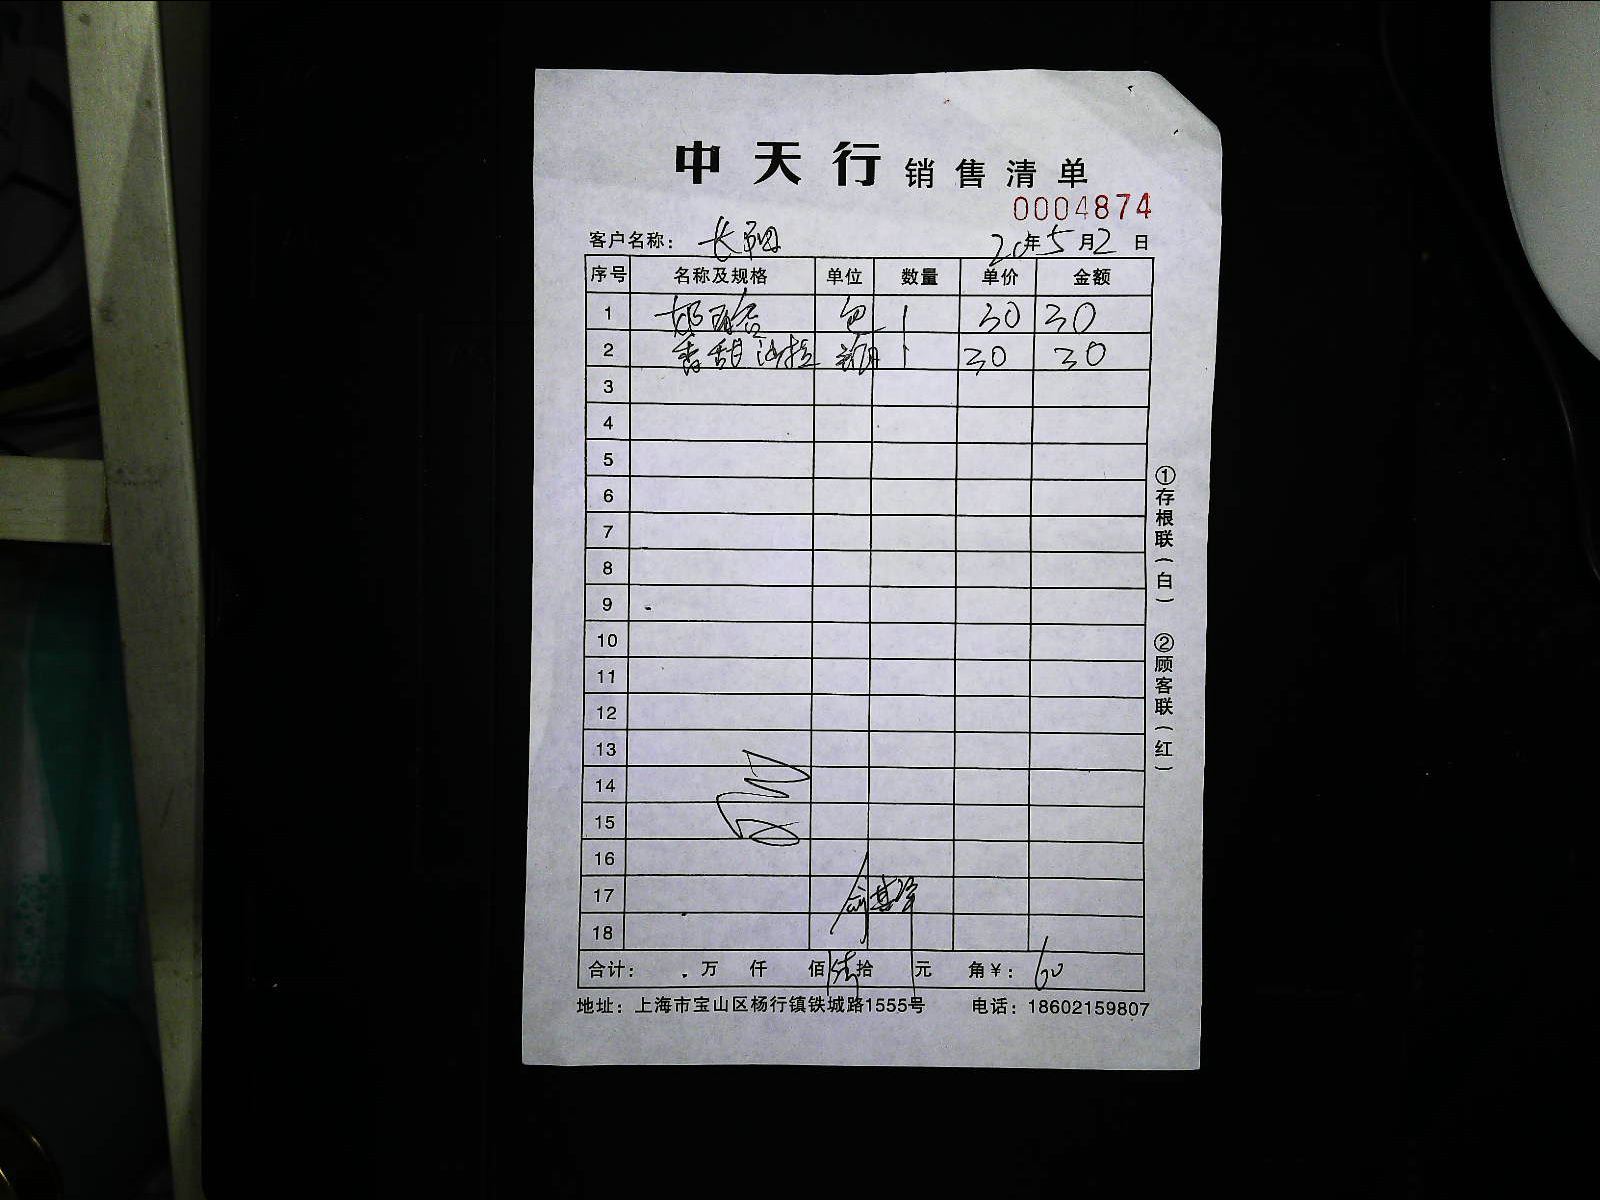 中天行 销售清单
0004874
客户名称： 长阳 20年5月2日
序号 名称及规格 单位 数量 单价 金额
1 包 1 30 30
2 香甜沙拉 瓶 1 30 30
3
4
5
6
7
8
9
10
11
12
13
14
15
16
17
18
合计： 万 仟 佰陆拾 元 角￥：60
地址：上海市宝山区杨行镇铁城路1555号 电话：18602159807
①存根联（白） ②顾客联（红）